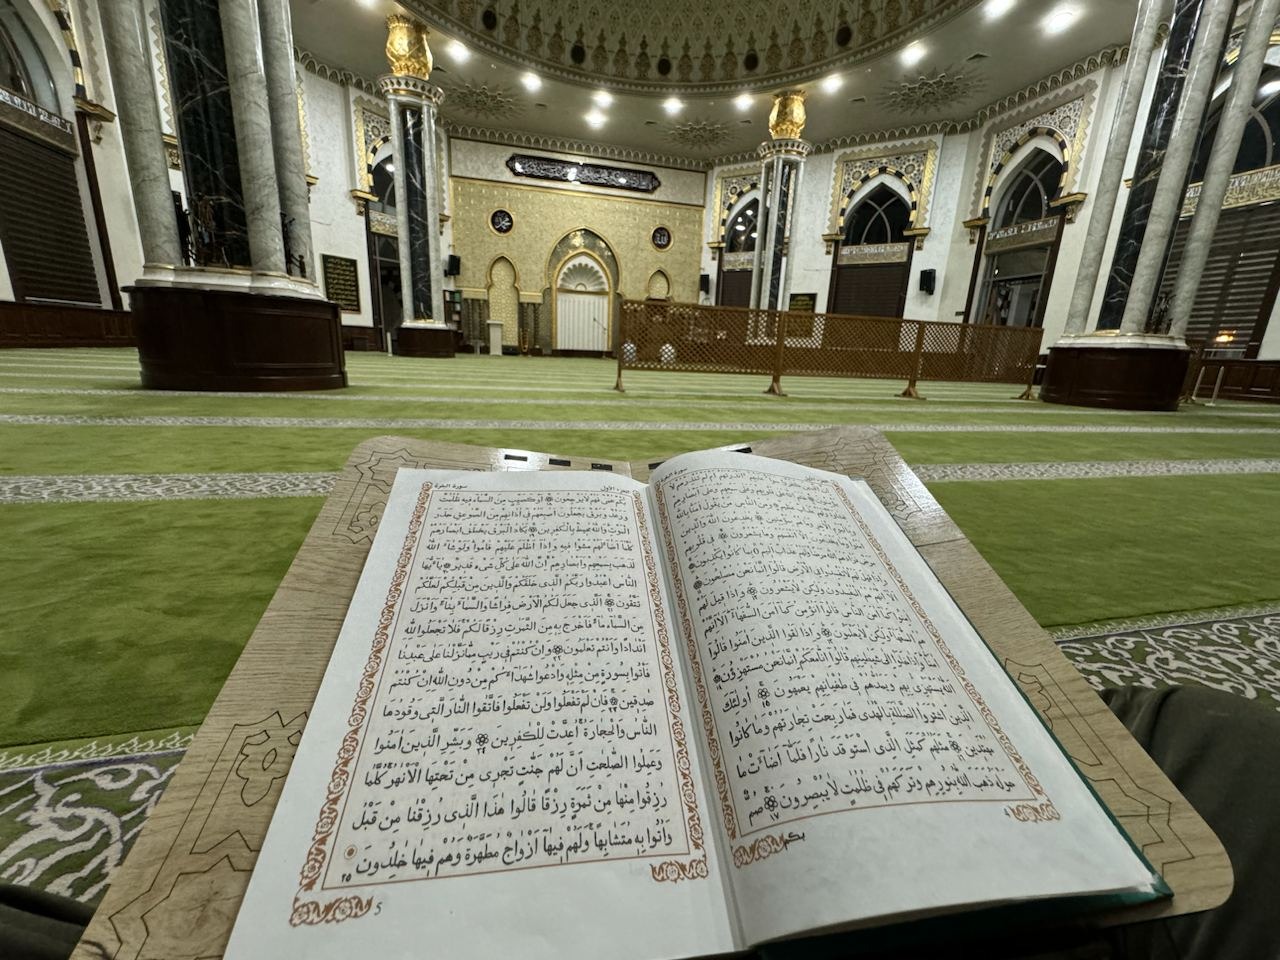 سورة البقرة
ءَاَنْذَرْتَهُمْ اَمْ لَمْ تُنْذِرْهُمْ لَا
يُؤْمِنُونَ خَتَمَ اللّٰهُ عَلٰى قُلُوبِهِمْ وَعَلٰى سَمْعِهِمْ وَعَلٰى اَبْصَارِهِمْ
وَمِنَ النَّاسِ مَنْ يَقُولُ اٰمَنَّا بِاللّٰهِ
يُخَادِعُونَ اللّٰهَ وَالَّذِينَ
اٰمَنُوا وَمَا يَخْدَعُونَ اِلَّا اَنْفُسَهُمْ وَمَا يَشْعُرُونَ فِى قُلُوبِهِمْ
مَرَضٌ فَزَادَهُمُ اللّٰهُ مَرَضًا وَلَهُمْ عَذَابٌ اَلِيمٌ بِمَا كَانُوا يَكْذِبُونَ
وَاِذَا قِيلَ لَهُمْ لَا تُفْسِدُوا فِى الْاَرْضِ قَالُوا اِنَّمَا نَحْنُ مُصْلِحُونَ
اَلَا اِنَّهُمْ هُمُ الْمُفْسِدُونَ وَلٰكِنْ لَا يَشْعُرُونَ وَاِذَا قِيلَ لَهُمْ
اٰمِنُوا كَمَا اٰمَنَ النَّاسُ قَالُوا اَنُؤْمِنُ كَمَا اٰمَنَ السُّفَهَاءُ اَلَا اِنَّهُمْ
هُمُ السُّفَهَاءُ وَلٰكِنْ لَا يَعْلَمُونَ وَاِذَا لَقُوا الَّذِينَ اٰمَنُوا قَالُوا
اٰمَنَّا وَاِذَا خَلَوْا اِلٰى شَيٰطِينِهِمْ قَالُوا اِنَّا مَعَكُمْ اِنَّمَا نَحْنُ مُسْتَهْزِؤُنَ ١٤
اَللّٰهُ يَسْتَهْزِئُ بِهِمْ وَيَمُدُّهُمْ فِى طُغْيَانِهِمْ يَعْمَهُونَ ١٥ اُولٰئِكَ
الَّذِينَ اشْتَرَوُا الضَّلٰلَةَ بِالْهُدٰى فَمَا رَبِحَتْ تِجَارَتُهُمْ وَمَا كَانُوا
مُهْتَدِينَ ١٦ مَثَلُهُمْ كَمَثَلِ الَّذِى اسْتَوْقَدَ نَارًا فَلَمَّا اَضَاءَتْ مَا
حَوْلَهُ ذَهَبَ اللّٰهُ بِنُورِهِمْ وَتَرَكَهُمْ فِى ظُلُمٰتٍ لَا يُبْصِرُونَ ١٧ صُمٌّ
بكم
٤
الجزء الأول
سورة البقرة
بُكْمٌ عُمْىٌ فَهُمْ لَا يَرْجِعُونَ ١٨ اَوْ كَصَيِّبٍ مِنَ السَّمَاءِ فِيهِ ظُلُمٰتٌ
وَرَعْدٌ وَبَرْقٌ يَجْعَلُونَ اَصَابِعَهُمْ فِى اٰذَانِهِمْ مِنَ الصَّوَاعِقِ حَذَرَ
الْمَوْتِ وَاللّٰهُ مُحِيطٌ بِالْكٰفِرِينَ ١٩ يَكَادُ الْبَرْقُ يَخْطَفُ اَبْصَارَهُمْ
كُلَّمَا اَضَاءَ لَهُمْ مَشَوْا فِيهِ وَاِذَا اَظْلَمَ عَلَيْهِمْ قَامُوا وَلَوْ شَاءَ اللّٰهُ
لَذَهَبَ بِسَمْعِهِمْ وَاَبْصَارِهِمْ اِنَّ اللّٰهَ عَلٰى كُلِّ شَىْءٍ قَدِيرٌ ٢٠ يَا اَيُّهَا
النَّاسُ اعْبُدُوا رَبَّكُمُ الَّذِى خَلَقَكُمْ وَالَّذِينَ مِنْ قَبْلِكُمْ لَعَلَّكُمْ
تَتَّقُونَ ٢١ اَلَّذِى جَعَلَ لَكُمُ الْاَرْضَ فِرَاشًا وَالسَّمَاءَ بِنَاءً وَاَنْزَلَ
مِنَ السَّمَاءِ مَاءً فَاَخْرَجَ بِهِ مِنَ الثَّمَرٰتِ رِزْقًا لَكُمْ فَلَا تَجْعَلُوا لِلّٰهِ
اَنْدَادًا وَاَنْتُمْ تَعْلَمُونَ ٢٢ وَاِنْ كُنْتُمْ فِى رَيْبٍ مِمَّا نَزَّلْنَا عَلٰى عَبْدِنَا
فَأْتُوا بِسُورَةٍ مِنْ مِثْلِهِ وَادْعُوا شُهَدَاءَكُمْ مِنْ دُونِ اللّٰهِ اِنْ كُنْتُمْ
صٰدِقِينَ ٢٣ فَاِنْ لَمْ تَفْعَلُوا وَلَنْ تَفْعَلُوا فَاتَّقُوا النَّارَ الَّتِى وَقُودُهَا
النَّاسُ وَالْحِجَارَةُ اُعِدَّتْ لِلْكٰفِرِينَ ٢٤ وَبَشِّرِ الَّذِينَ اٰمَنُوا
وَعَمِلُوا الصّٰلِحٰتِ اَنَّ لَهُمْ جَنّٰتٍ تَجْرِى مِنْ تَحْتِهَا الْاَنْهٰرُ كُلَّمَا
رُزِقُوا مِنْهَا مِنْ ثَمَرَةٍ رِزْقًا قَالُوا هٰذَا الَّذِى رُزِقْنَا مِنْ قَبْلُ
وَاُتُوا بِهِ مُتَشَابِهًا وَلَهُمْ فِيهَا اَزْوَاجٌ مُطَهَّرَةٌ وَهُمْ فِيهَا خٰلِدُونَ ٢٥
5